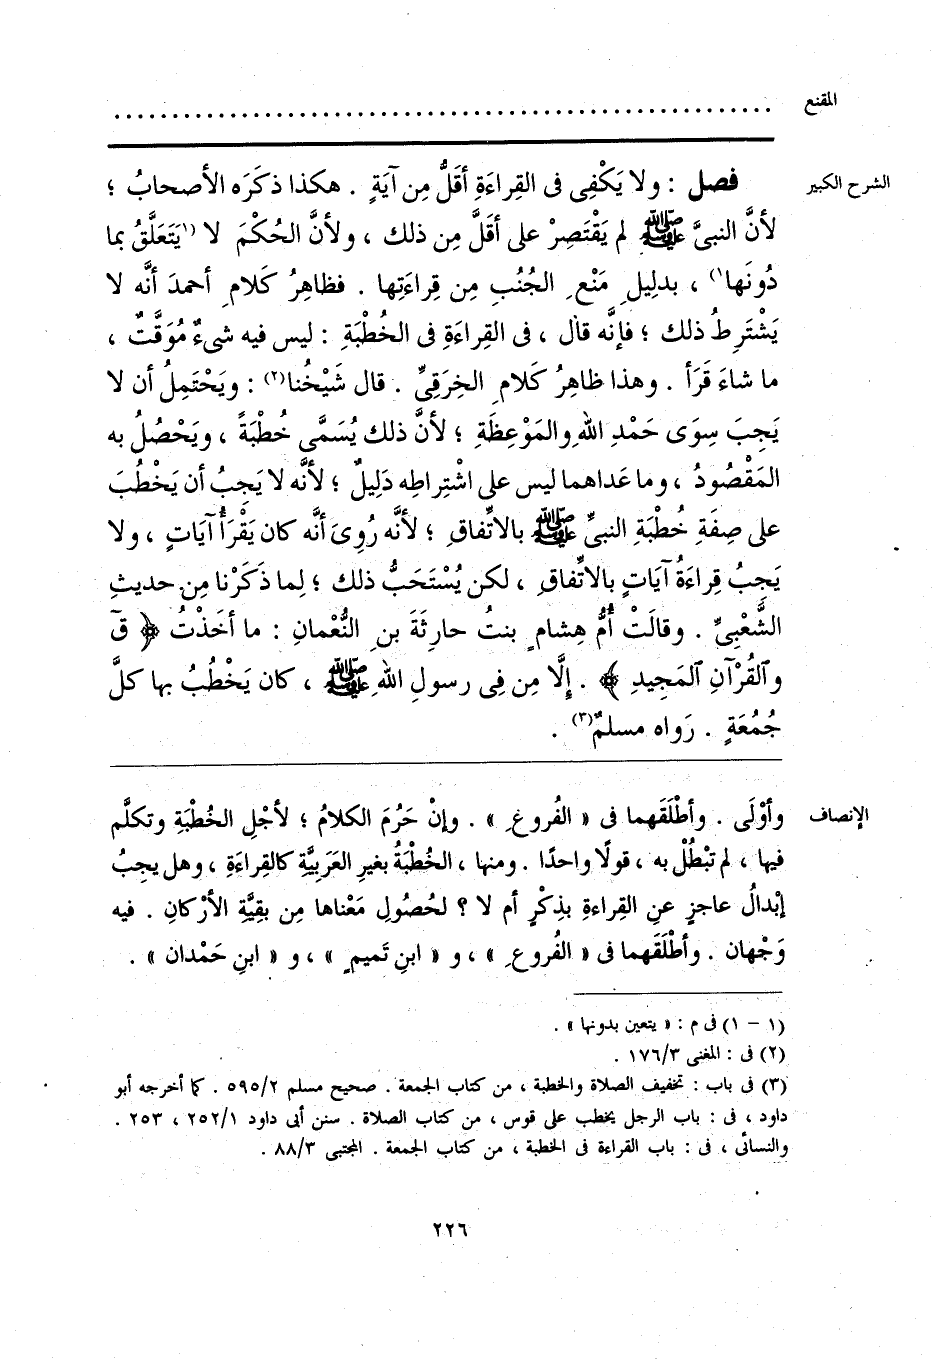 المقنع ......................................................
الشرح الكبير فصل : ولا يَكْفِى فى القِراءَةِ أقَلُّ مِن آيَةٍ . هكذا ذكَرَه الأصحابُ ؛
لأنَّ النبىَّ ﷺ لم يَقْتَصِرْ على أقَلَّ مِن ذلك ، ولأنَّ الحُكْمَ لا (١يَتَعَلَّقُ بما
دُونَها١) ، بدلِيلِ مَنْعِ الجُنُبِ مِن قِراءَتِها . فظاهِرُ كَلامِ أحمدَ أنَّه لا
يَشْتَرِطُ ذلك ؛ فإنَّه قال ، فى القِراءَةِ فى الخُطْبَةِ : ليس فيه شىءٌ مُوَقَّتٌ ،
ما شاءَ قَرَأ . وهذا ظاهِرُ كَلامِ الخِرَقِىِّ . قال شَيْخُنا(٢) : ويَحْتَمِلُ أن لا
يَجِبَ سِوَى حَمْدِ اللهِ والمَوْعِظَةِ ؛ لأنَّ ذلك يُسَمَّى خُطْبَةً ، ويَحْصُلُ به
المَقْصُودُ ، وما عَداهما ليس على اشْتِراطِه دَلِيلٌ ؛ لأنَّه لا يَجِبُ أن يَخْطُبَ
على صِفَةِ خُطْبَةِ النبىِّ ﷺ بالاتِّفاقِ ؛ لأنَّه رُوِىَ أنَّه كان يَقْرَأُ آيَاتٍ ، ولا
يَجِبُ قِراءَةُ آيَاتٍ بالاتِّفاقِ ، لكن يُسْتَحَبُّ ذلك ؛ لِما ذَكَرْنا مِن حديثِ
الشَّعْبِىِّ . وقالَتْ أُمُّ هِشامٍ بنتُ حارِثَةَ بنِ النُّعْمانِ : ما أخَذْتُ ﴿ قٓ
وَٱلْقُرْآنِ ٱلْمَجِيدِ ﴾ . إلَّا مِن فِى رسولِ اللهِ ﷺ ، كان يَخْطُبُ بها كلَّ
جُمُعَةٍ . رَواه مسلمٌ(٣) .
الإنصاف وأوْلَى . وأطْلَقَهما فى « الفُروعِ » . وإنْ حَرُمَ الكلامُ ؛ لأجْلِ الخُطْبَةِ وتكلَّم
فيها ، لم تبْطُلْ به ، قولًا واحدًا . ومنها ، الخُطْبَةُ بغيرِ العَرَبِيَّةِ كالقِراءَةِ ، وهل يجِبُ
إبْدالُ عاجزٍ عنِ القِراءةِ بذِكْرٍ أم لا ؟ لحُصُولِ مَعْناها مِن بقِيَّةِ الأرْكانِ . فيه
وَجْهان . وأطْلَقَهما فى « الفُروعِ » ، و « ابنِ تَميمٍ » ، و « ابنِ حَمْدان » .
(١ – ١) فى م : « يتعين بدونها » .
(٢) فى : المغنى ٣/١٧٦ .
(٣) فى باب : تخفيف الصلاة والخطبة ، من كتاب الجمعة . صحيح مسلم ٢/٥٩٥ . كما أخرجه أبو
داود ، فى : باب الرجل يخطب على قوس ، من كتاب الصلاة . سنن أبى داود ١/٢٥٢ ، ٢٥٣ .
والنسائى ، فى : باب القراءة فى الخطبة ، من كتاب الجمعة . المجتبى ٣/٨٨ .
٢٢٦